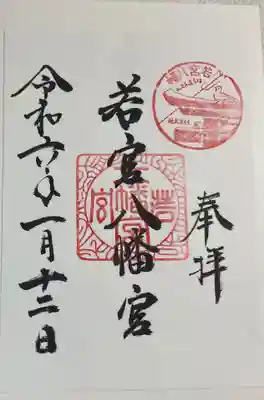 奉拝
若宮八幡宮
令和六年一月十二日